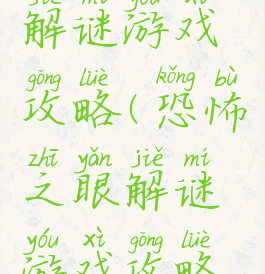 jiě mí yóu xì
解谜游戏
gōng lüè kǒng bù
攻略(恐怖
zhī yǎn jiě mí
之眼解谜
yóu xì gōng lüè
游戏攻略